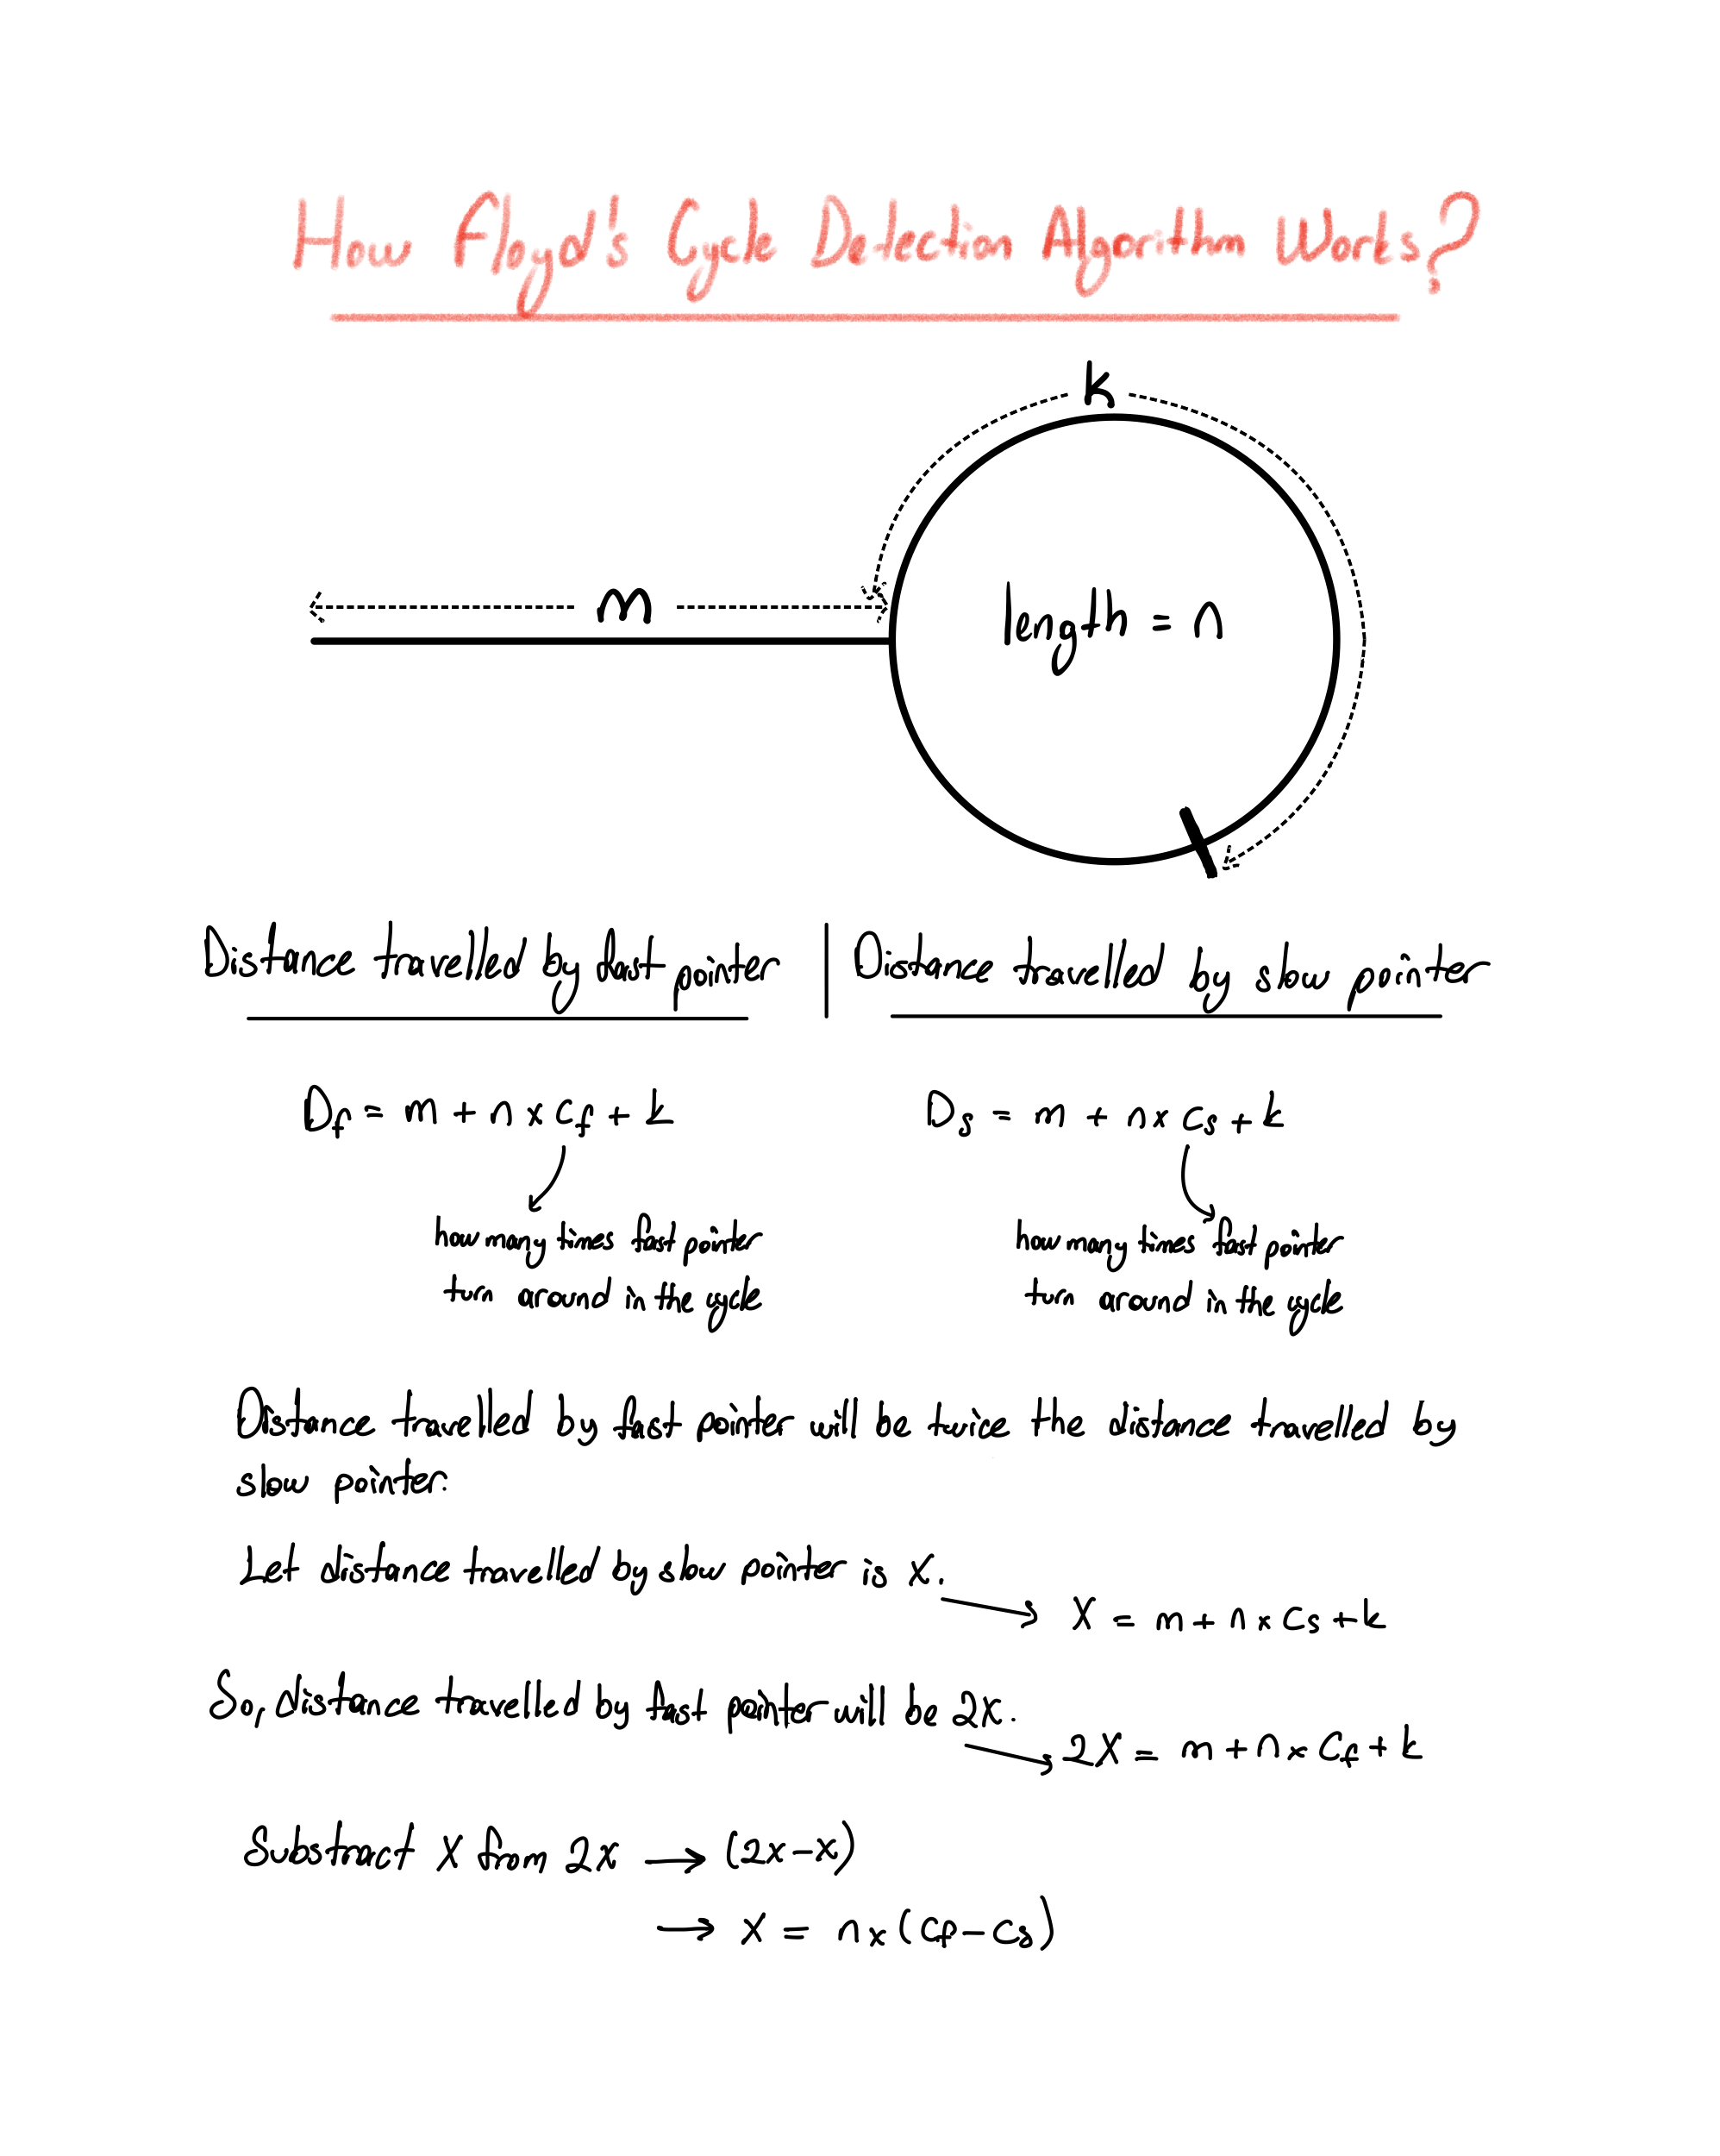 How Floyd's Cycle Detection Algorithm Works?
k
m
length = n
Distance travelled by fast pointer | Distance travelled by slow pointer
Df = m + n x cf + k
Ds = m + n x cs + k
how many times fast pointer
turn around in the cycle
how many times fast pointer
turn around in the cycle
Distance travelled by fast pointer will be twice the distance travelled by
slow pointer.
Let distance travelled by slow pointer is x.
→ X = m + n x cs + k
So, distance travelled by fast pointer will be 2x.
→ 2X = m + n x cf + k
Substract X from 2x → (2x-x)
→ X = n x (cf - cs)